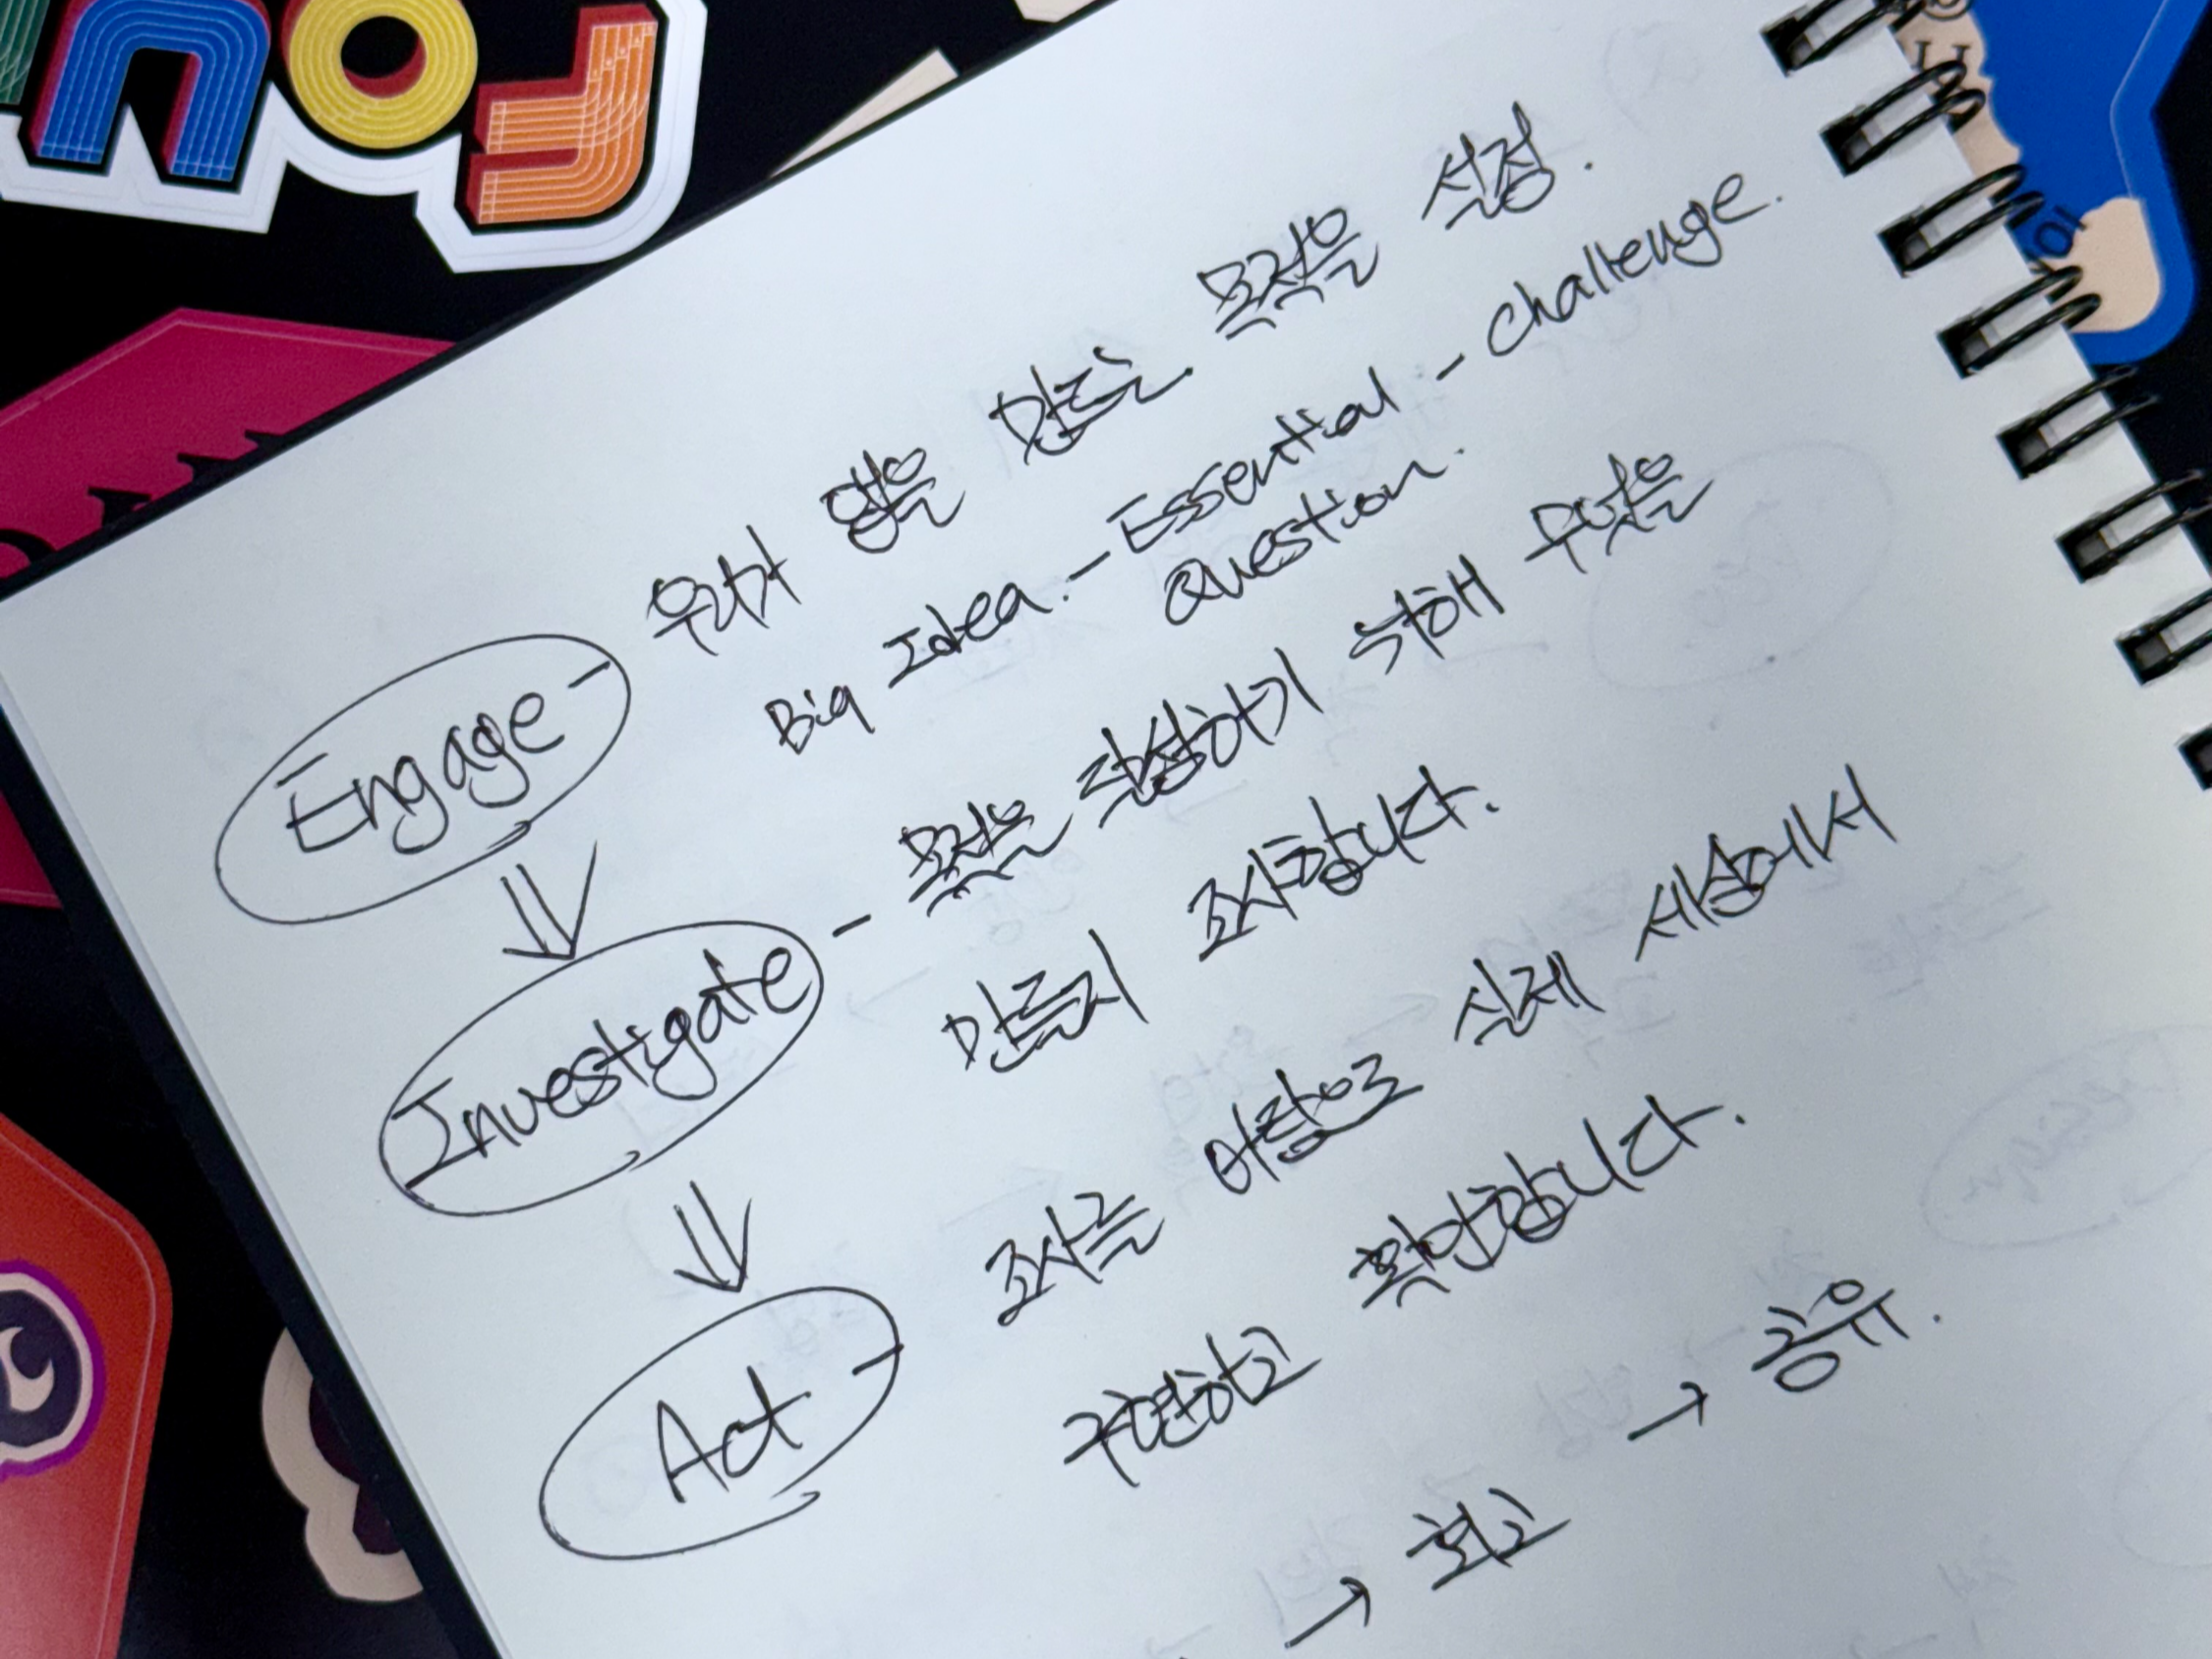 Engage - 우리가 앱을 만드는 목적을 설정.
Big Idea. - Essential Question. - Challenge.
Investigate - 목적을 달성하기 위해 무엇을
만들지 조사합니다.
Act - 조사를 바탕으로 실제 세상에서
구현하고 확인합니다.
→ 회고 → 공유.
FOU